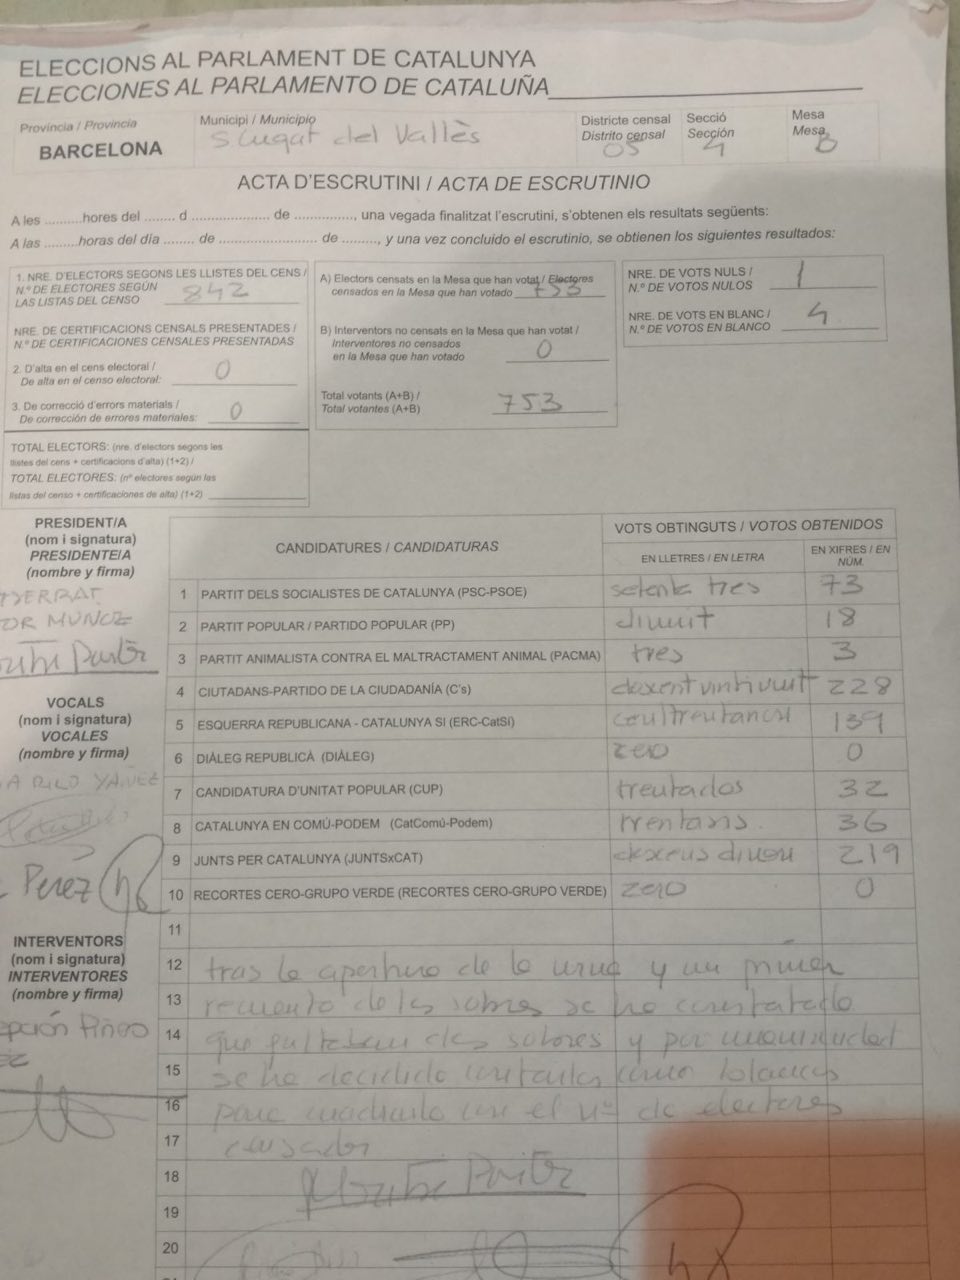 ELECCIONS AL PARLAMENT DE CATALUNYA
ELECCIONES AL PARLAMENTO DE CATALUÑA
Provincia / Provincia
BARCELONA
Municipi / Municipio
S Cugat del Vallès
Districte censal
Distrito censal
05
Secció
Sección
4
Mesa
Mesa
B
ACTA D'ESCRUTINI / ACTA DE ESCRUTINIO
A les .........hores del ........ d .................... de ..............., una vegada finalitzat l'escrutini, s'obtenen els resultats següents:
A las .........horas del día ........ de ......................... de ........., y una vez concluido el escrutinio, se obtienen los siguientes resultados:
1. NRE. D'ELECTORS SEGONS LES LLISTES DEL CENS /
N.º DE ELECTORES SEGÚN
LAS LISTAS DEL CENSO 842
NRE. DE CERTIFICACIONS CENSALS PRESENTADES /
N.º DE CERTIFICACIONES CENSALES PRESENTADAS
2. D'alta en el cens electoral /
De alta en el censo electoral: 0
3. De correcció d'errors materials /
De corrección de errores materiales: 0
TOTAL ELECTORS: (nre. d'electors segons les
llistes del cens + certificacions d'alta) (1+2) /
TOTAL ELECTORES: (nº electores según las
listas del censo + certificaciones de alta) (1+2)
A) Electors censats en la Mesa que han votat / Electores
censados en la Mesa que han votado 753
B) Interventors no censats en la Mesa que han votat /
Interventores no censados
en la Mesa que han votado 0
Total votants (A+B) /
Total votantes (A+B) 753
NRE. DE VOTS NULS /
N.º DE VOTOS NULOS 1
NRE. DE VOTS EN BLANC /
N.º DE VOTOS EN BLANCO 4
PRESIDENT/A
(nom i signatura)
PRESIDENTE/A
(nombre y firma)
MUÑOZ
VOCALS
(nom i signatura)
VOCALES
(nombre y firma)
YAÑEZ
Perez
INTERVENTORS
(nom i signatura)
INTERVENTORES
(nombre y firma)
epción Piñero
CANDIDATURES / CANDIDATURAS
VOTS OBTINGUTS / VOTOS OBTENIDOS
EN LLETRES / EN LETRA
EN XIFRES / EN NÚM.
1 PARTIT DELS SOCIALISTES DE CATALUNYA (PSC-PSOE) setenta tres 73
2 PARTIT POPULAR / PARTIDO POPULAR (PP) divuit 18
3 PARTIT ANIMALISTA CONTRA EL MALTRACTAMENT ANIMAL (PACMA) tres 3
4 CIUTADANS-PARTIDO DE LA CIUDADANÍA (C's) 228
5 ESQUERRA REPUBLICANA - CATALUNYA SI (ERC-CatSí) 139
6 DIÀLEG REPUBLICÀ (DIÀLEG) zero 0
7 CANDIDATURA D'UNITAT POPULAR (CUP) trentados 32
8 CATALUNYA EN COMÚ-PODEM (CatComú-Podem) trentasis 36
9 JUNTS PER CATALUNYA (JUNTSxCAT) 219
10 RECORTES CERO-GRUPO VERDE (RECORTES CERO-GRUPO VERDE) zero 0
11
12 tras la apertura de la urna y un primer
13 recuento de los sobres se ha constatado
14 que faltaban dos sobres y por unanimidad
15 se ha decidido contarlos como blancos
16 para cuadrarlo con el nº de electores
17 censados
18
19
20